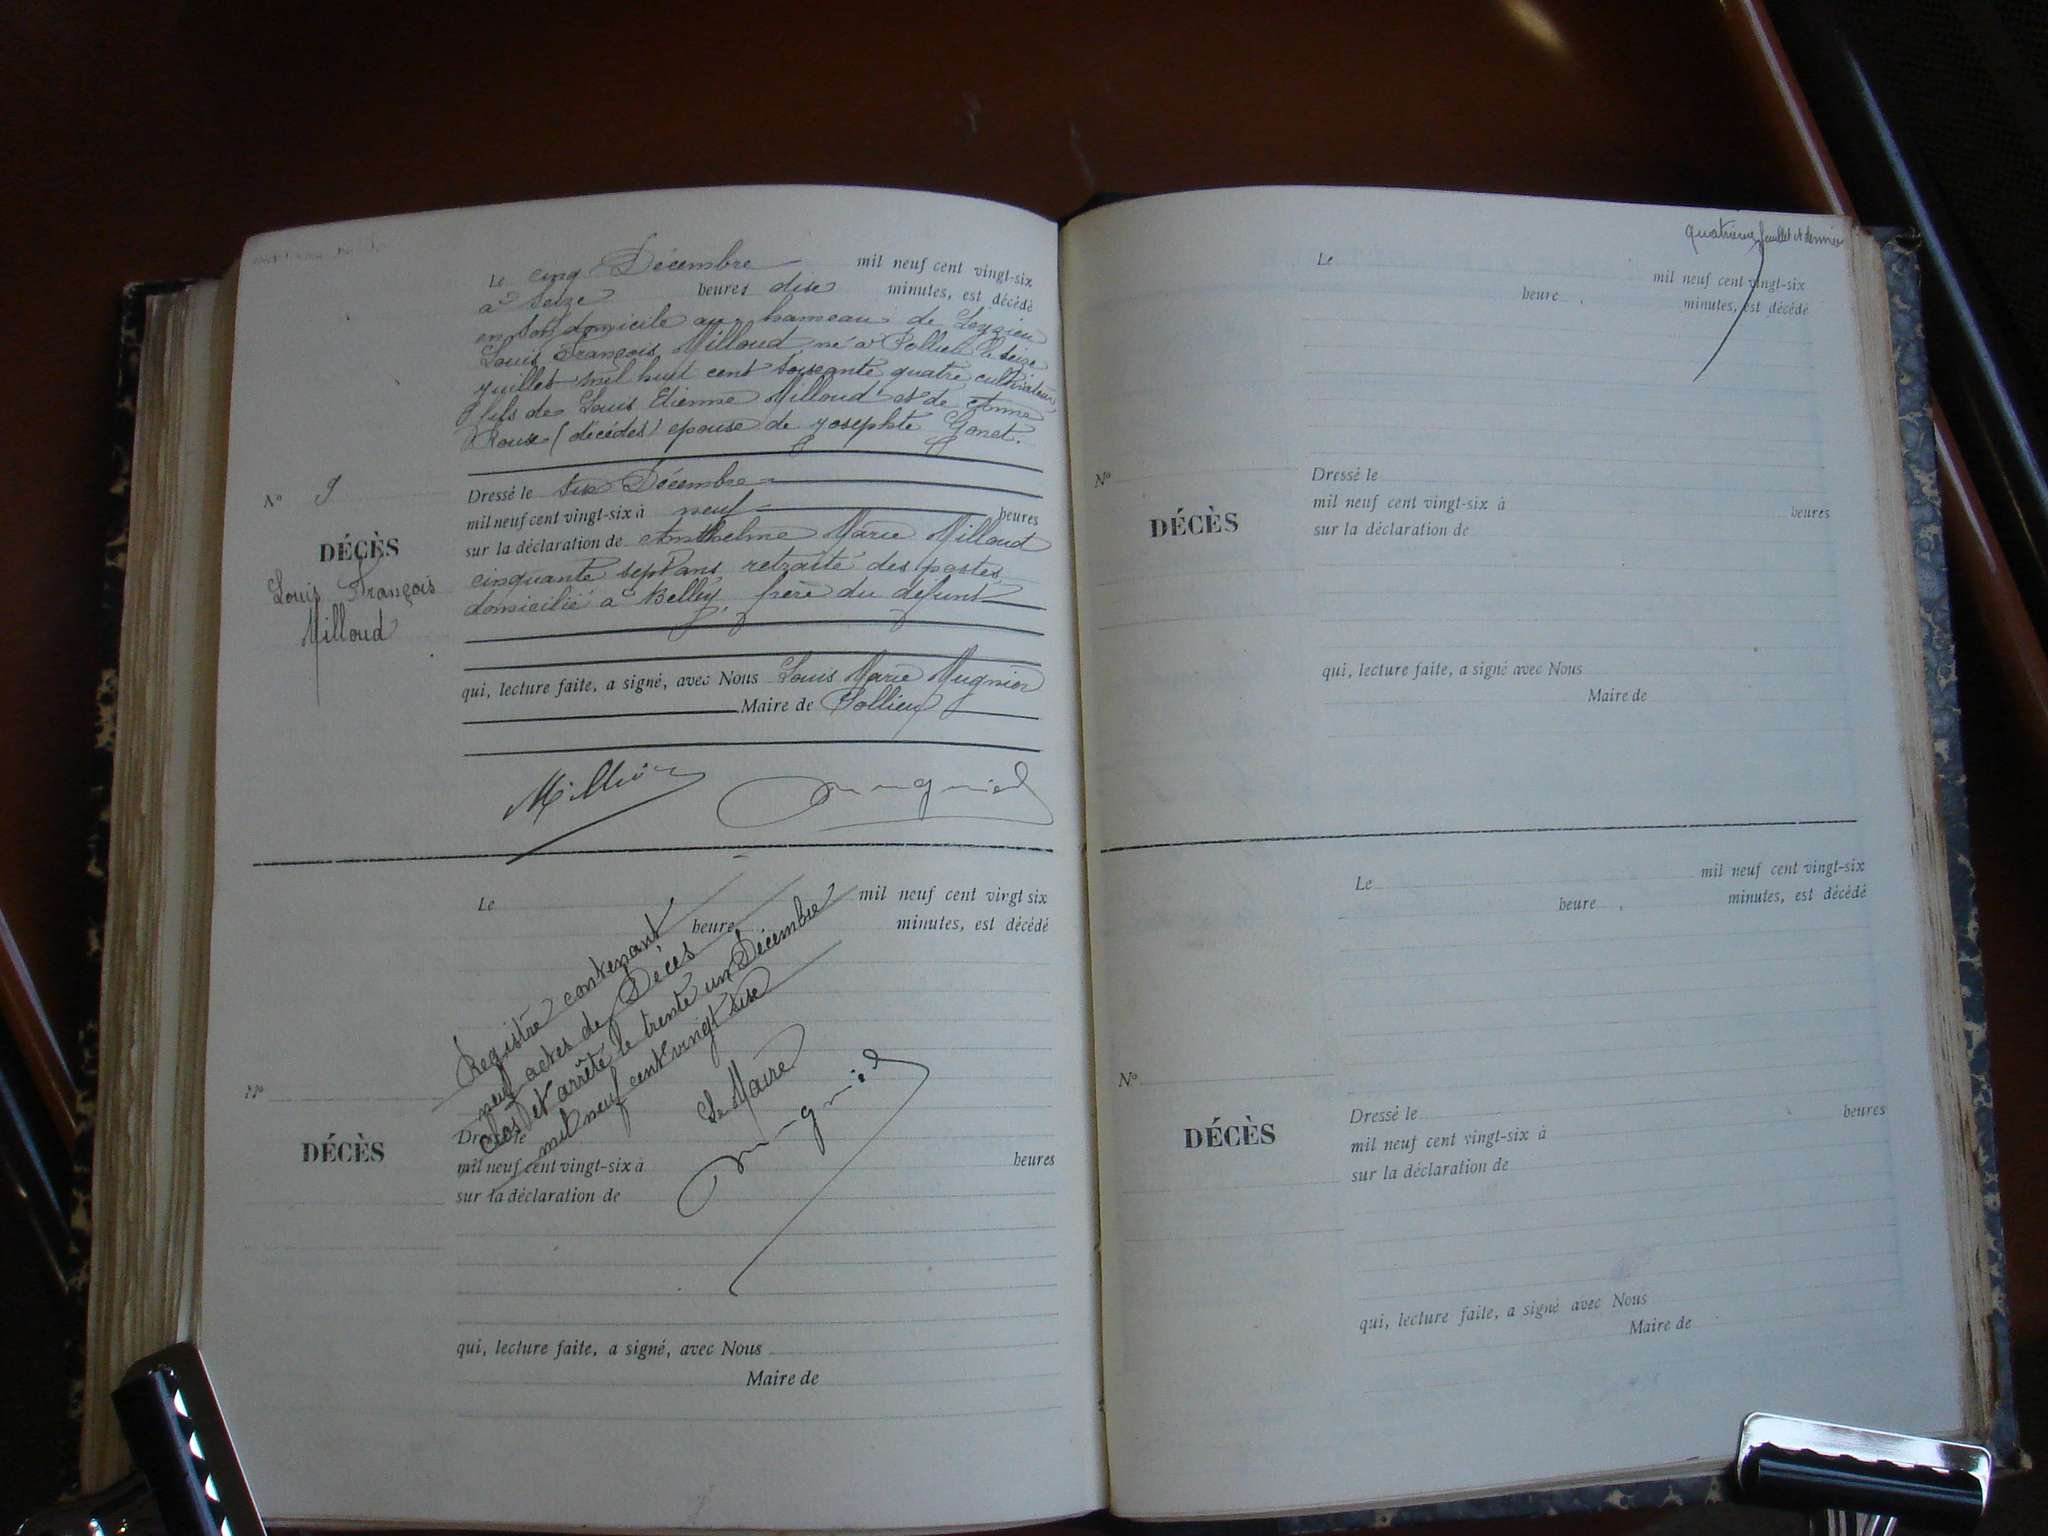 Le cinq Décembre mil neuf cent vingt-six
à seize heures dise minutes, est décédé
en son domicile au hameau de Leyzieu
Louis François Milloud né à Pollieu le seize
juillet mil huit cent soixante quatre cultivateur,
fils de Louis Etienne Milloud et de Anne
Roux (décédés) epouse de Josephte Gonet.
N° 9
DÉCÈS
Louis François
Milloud
Dressé le six Décembre
mil neuf cent vingt-six à neuf heures
sur la déclaration de Anthelme Marie Milloud
cinquante sept ans, retraité des postes,
domicilié à Belley, frère du défunt
qui, lecture faite, a signé, avec Nous Louis Marie Mugnier
Maire de Pollieu
Mugnier
Le mil neuf cent vingt six
heure minutes, est décédé
Registre contenant
neuf actes de Décès
clos et arrêté le trente un Décembre
mil neuf cent vingt sise
Le Maire
Mugnier
N°
DÉCÈS
Dressé le
mil neuf cent vingt-six à heures
sur la déclaration de
qui, lecture faite, a signé, avec Nous
Maire de
quatrième feuillet et dernier
Le mil neuf cent vingt-six
heure minutes, est décédé
N°
DÉCÈS
Dressé le
mil neuf cent vingt-six à heures
sur la déclaration de
qui, lecture faite, a signé avec Nous
Maire de
Le mil neuf cent vingt-six
heure minutes, est décédé
N°
DÉCÈS
Dressé le
mil neuf cent vingt-six à heures
sur la déclaration de
qui, lecture faite, a signé avec Nous
Maire de